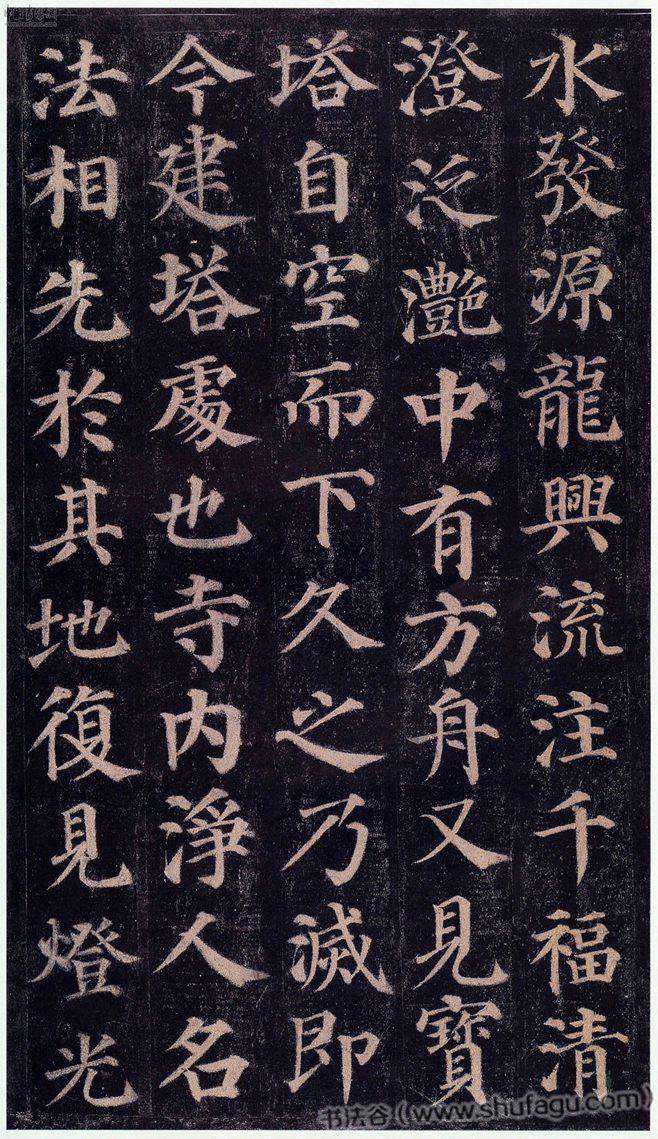 水發源龍興流注千福清
澄泛灔中有方舟又見寶
塔自空而下久之乃滅即
今建塔處也寺内淨人名
法相先於其地復見燈光
书法谷(www.shufagu.com)